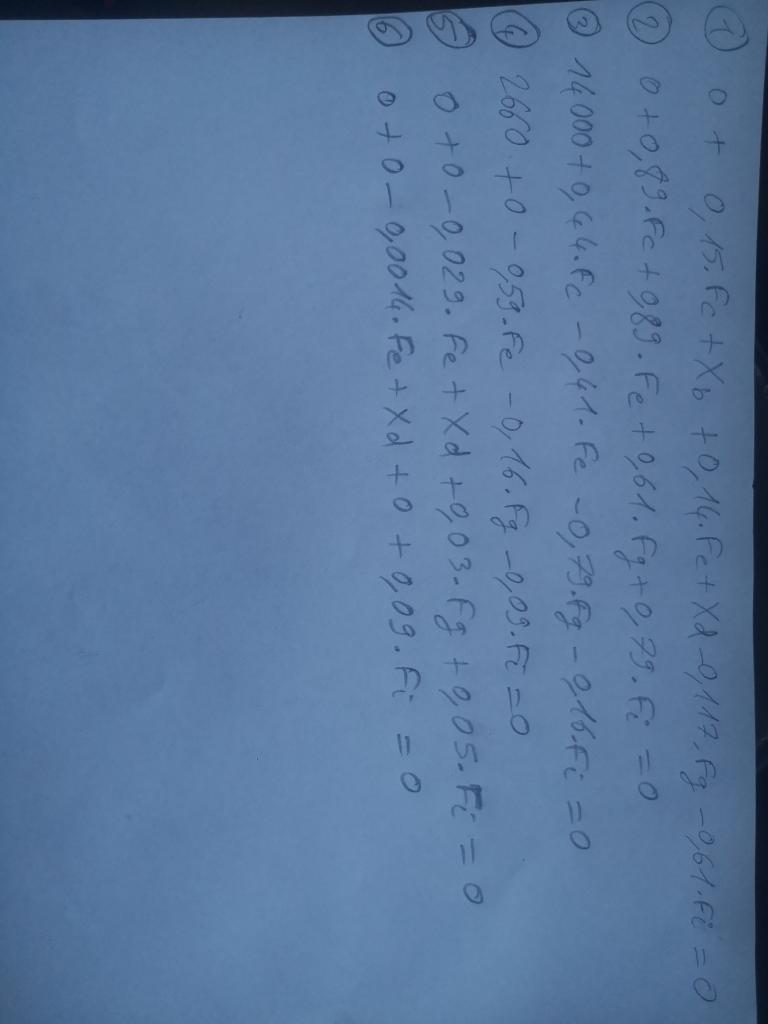 ① 0 + 0,15.Fc + Xb + 0,14.Fe + Xd - 0,117.Fg - 0,61.Fi = 0
② 0 + 0,89.Fc + 0,89.Fe + 0,61.Fg + 0,79.Fi = 0
③ 14000 + 0,44.Fc - 0,41.Fe - 0,79.Fg - 0,16.Fi = 0
④ 2660 + 0 - 0,59.Fe - 0,16.Fg - 0,09.Fi = 0
⑤ 0 + 0 - 0,029.Fe + Xd + 0,03.Fg + 0,05.Fi = 0
⑥ 0 + 0 - 0,0014.Fe + Xd + 0 + 0,09.Fi = 0